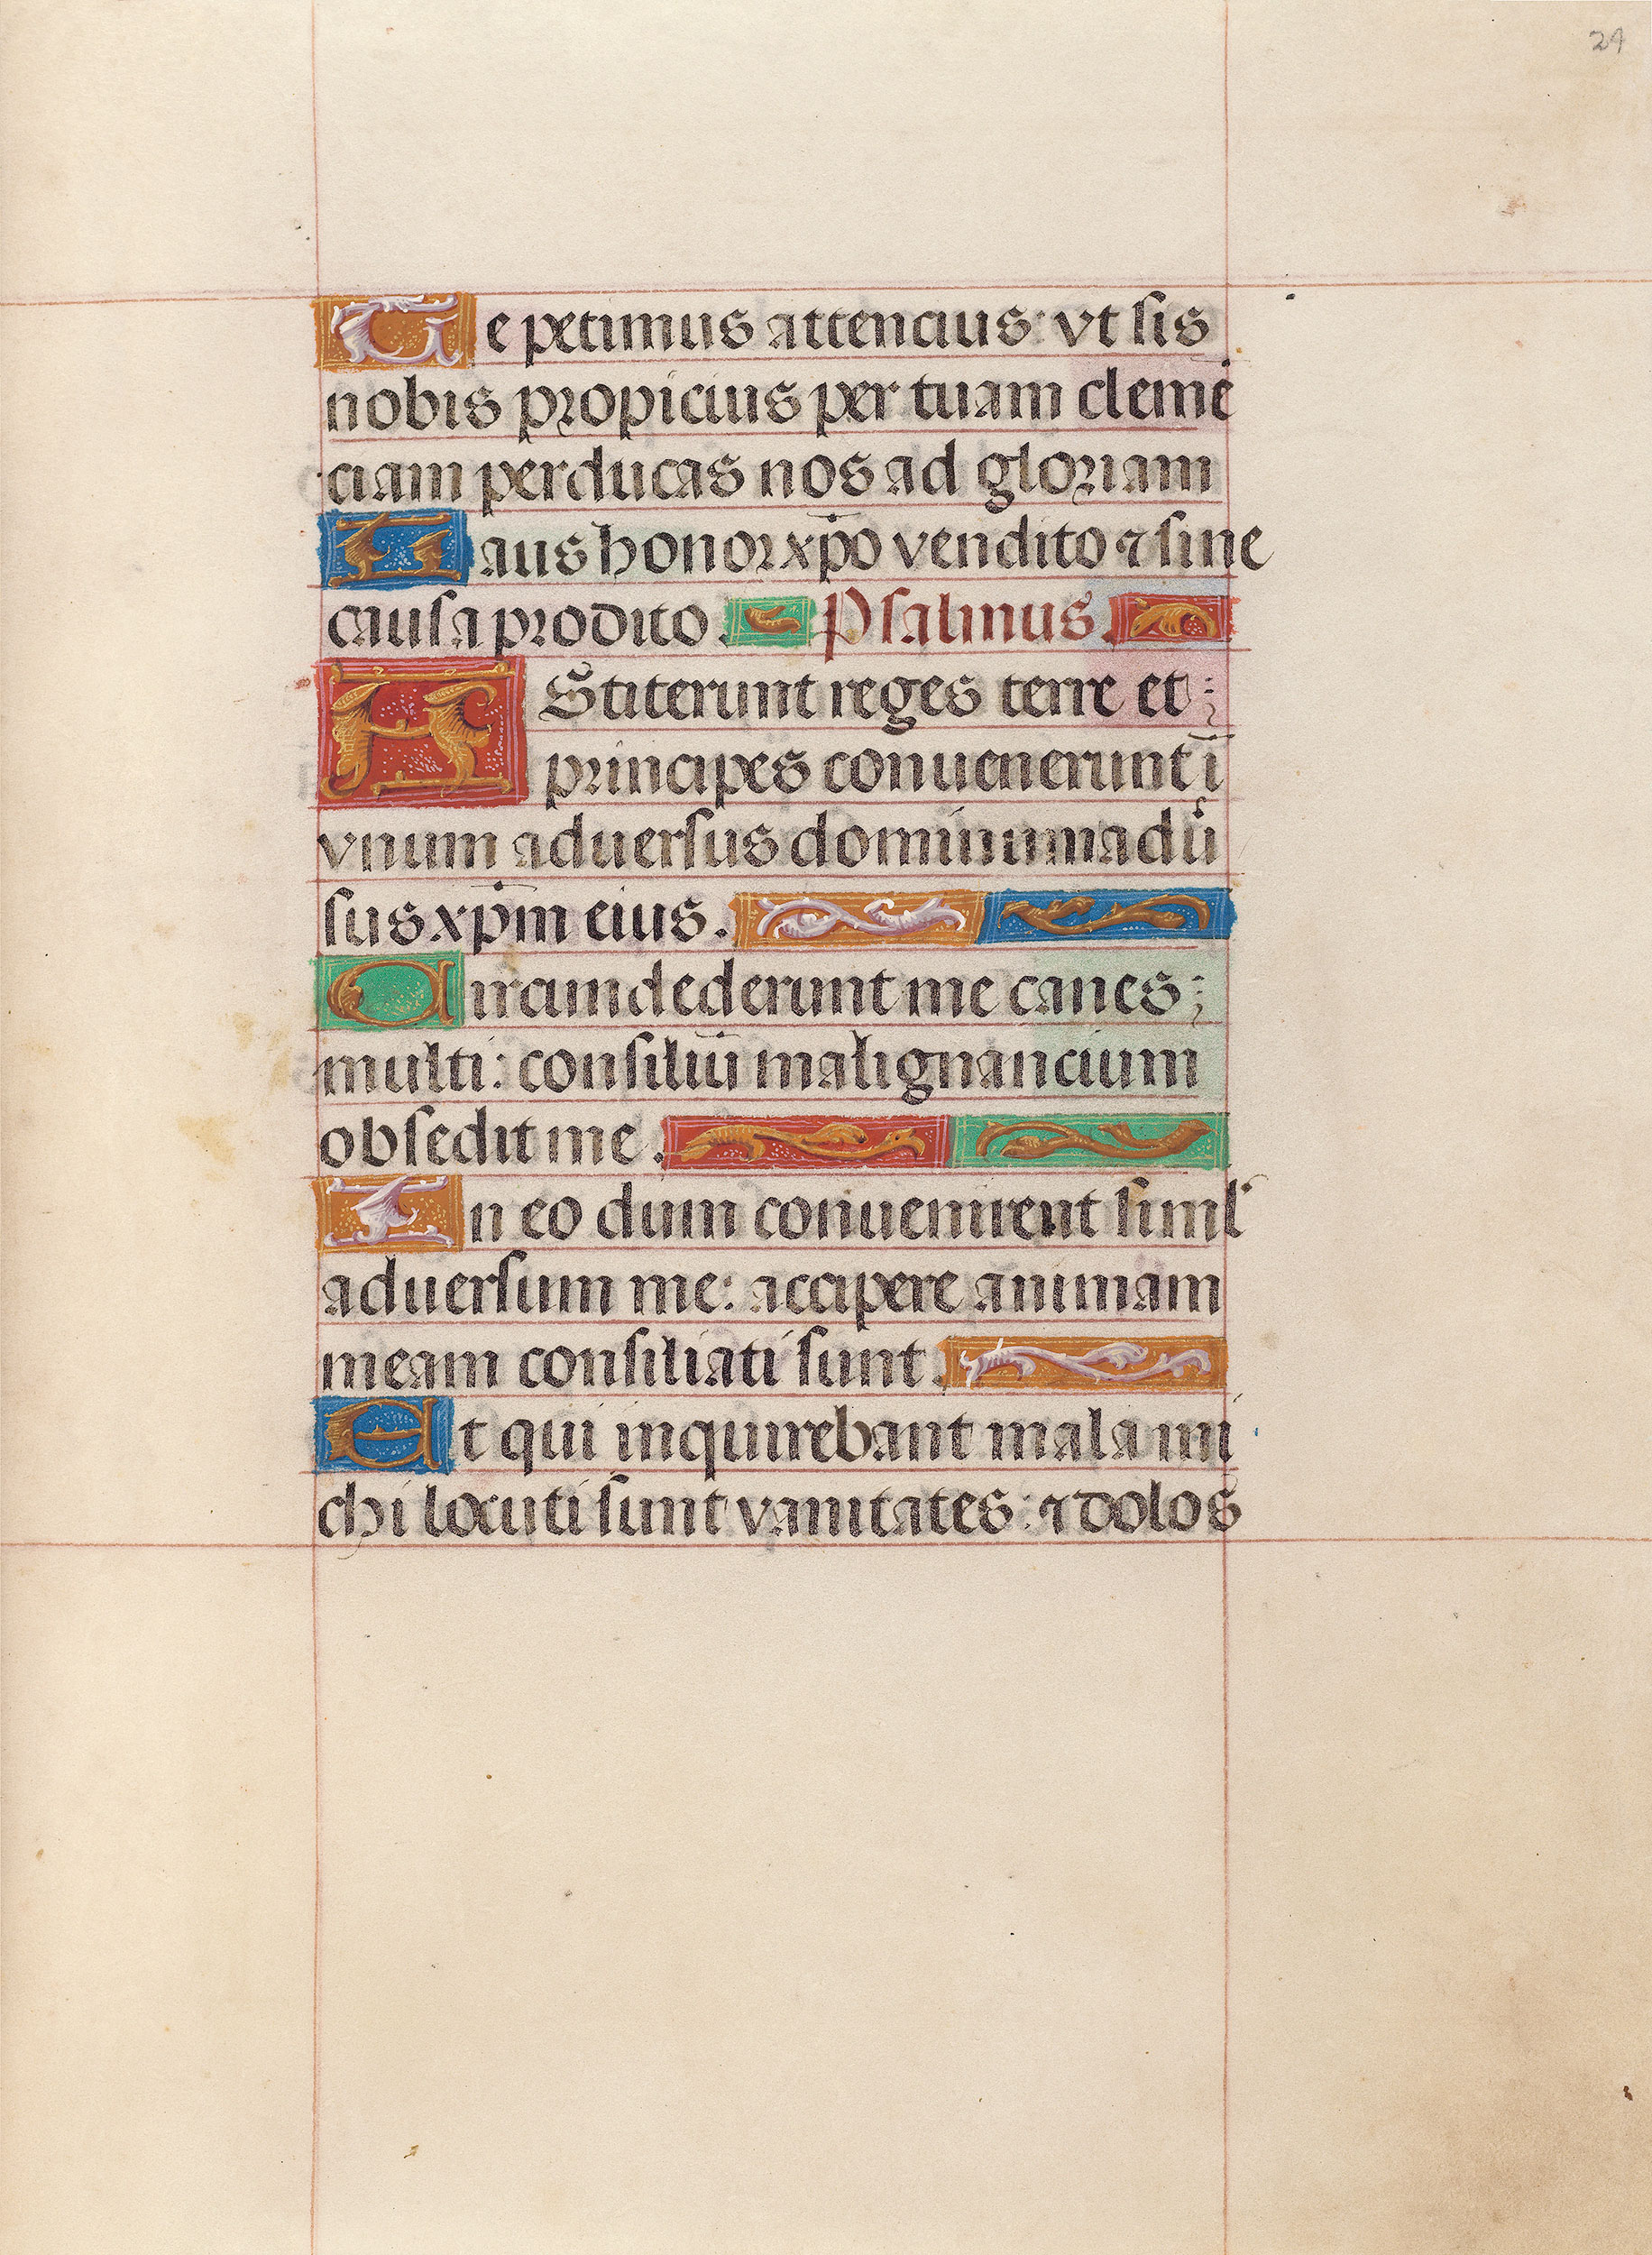 24
Te petimus attencius: vt sis
nobis propicius per tuam clemē
ciam perducas nos ad gloriam
Laus honor xp̄o vendito ⁊ sine
causa prodito. Psalmus.
AStiterunt reges terre et
principes conuenerunt ī
vnum aduersus dominum adũ
sus xp̄m eius.
Circumdederunt me canes
multi: consiliū malignancium
obsedit me.
In eo dum conuenirent siml'
aduersum me: accipere animam
meam consiliati sunt.
Et qui inquirebant mala mi
chi locuti sunt vanitates: ⁊ dolos